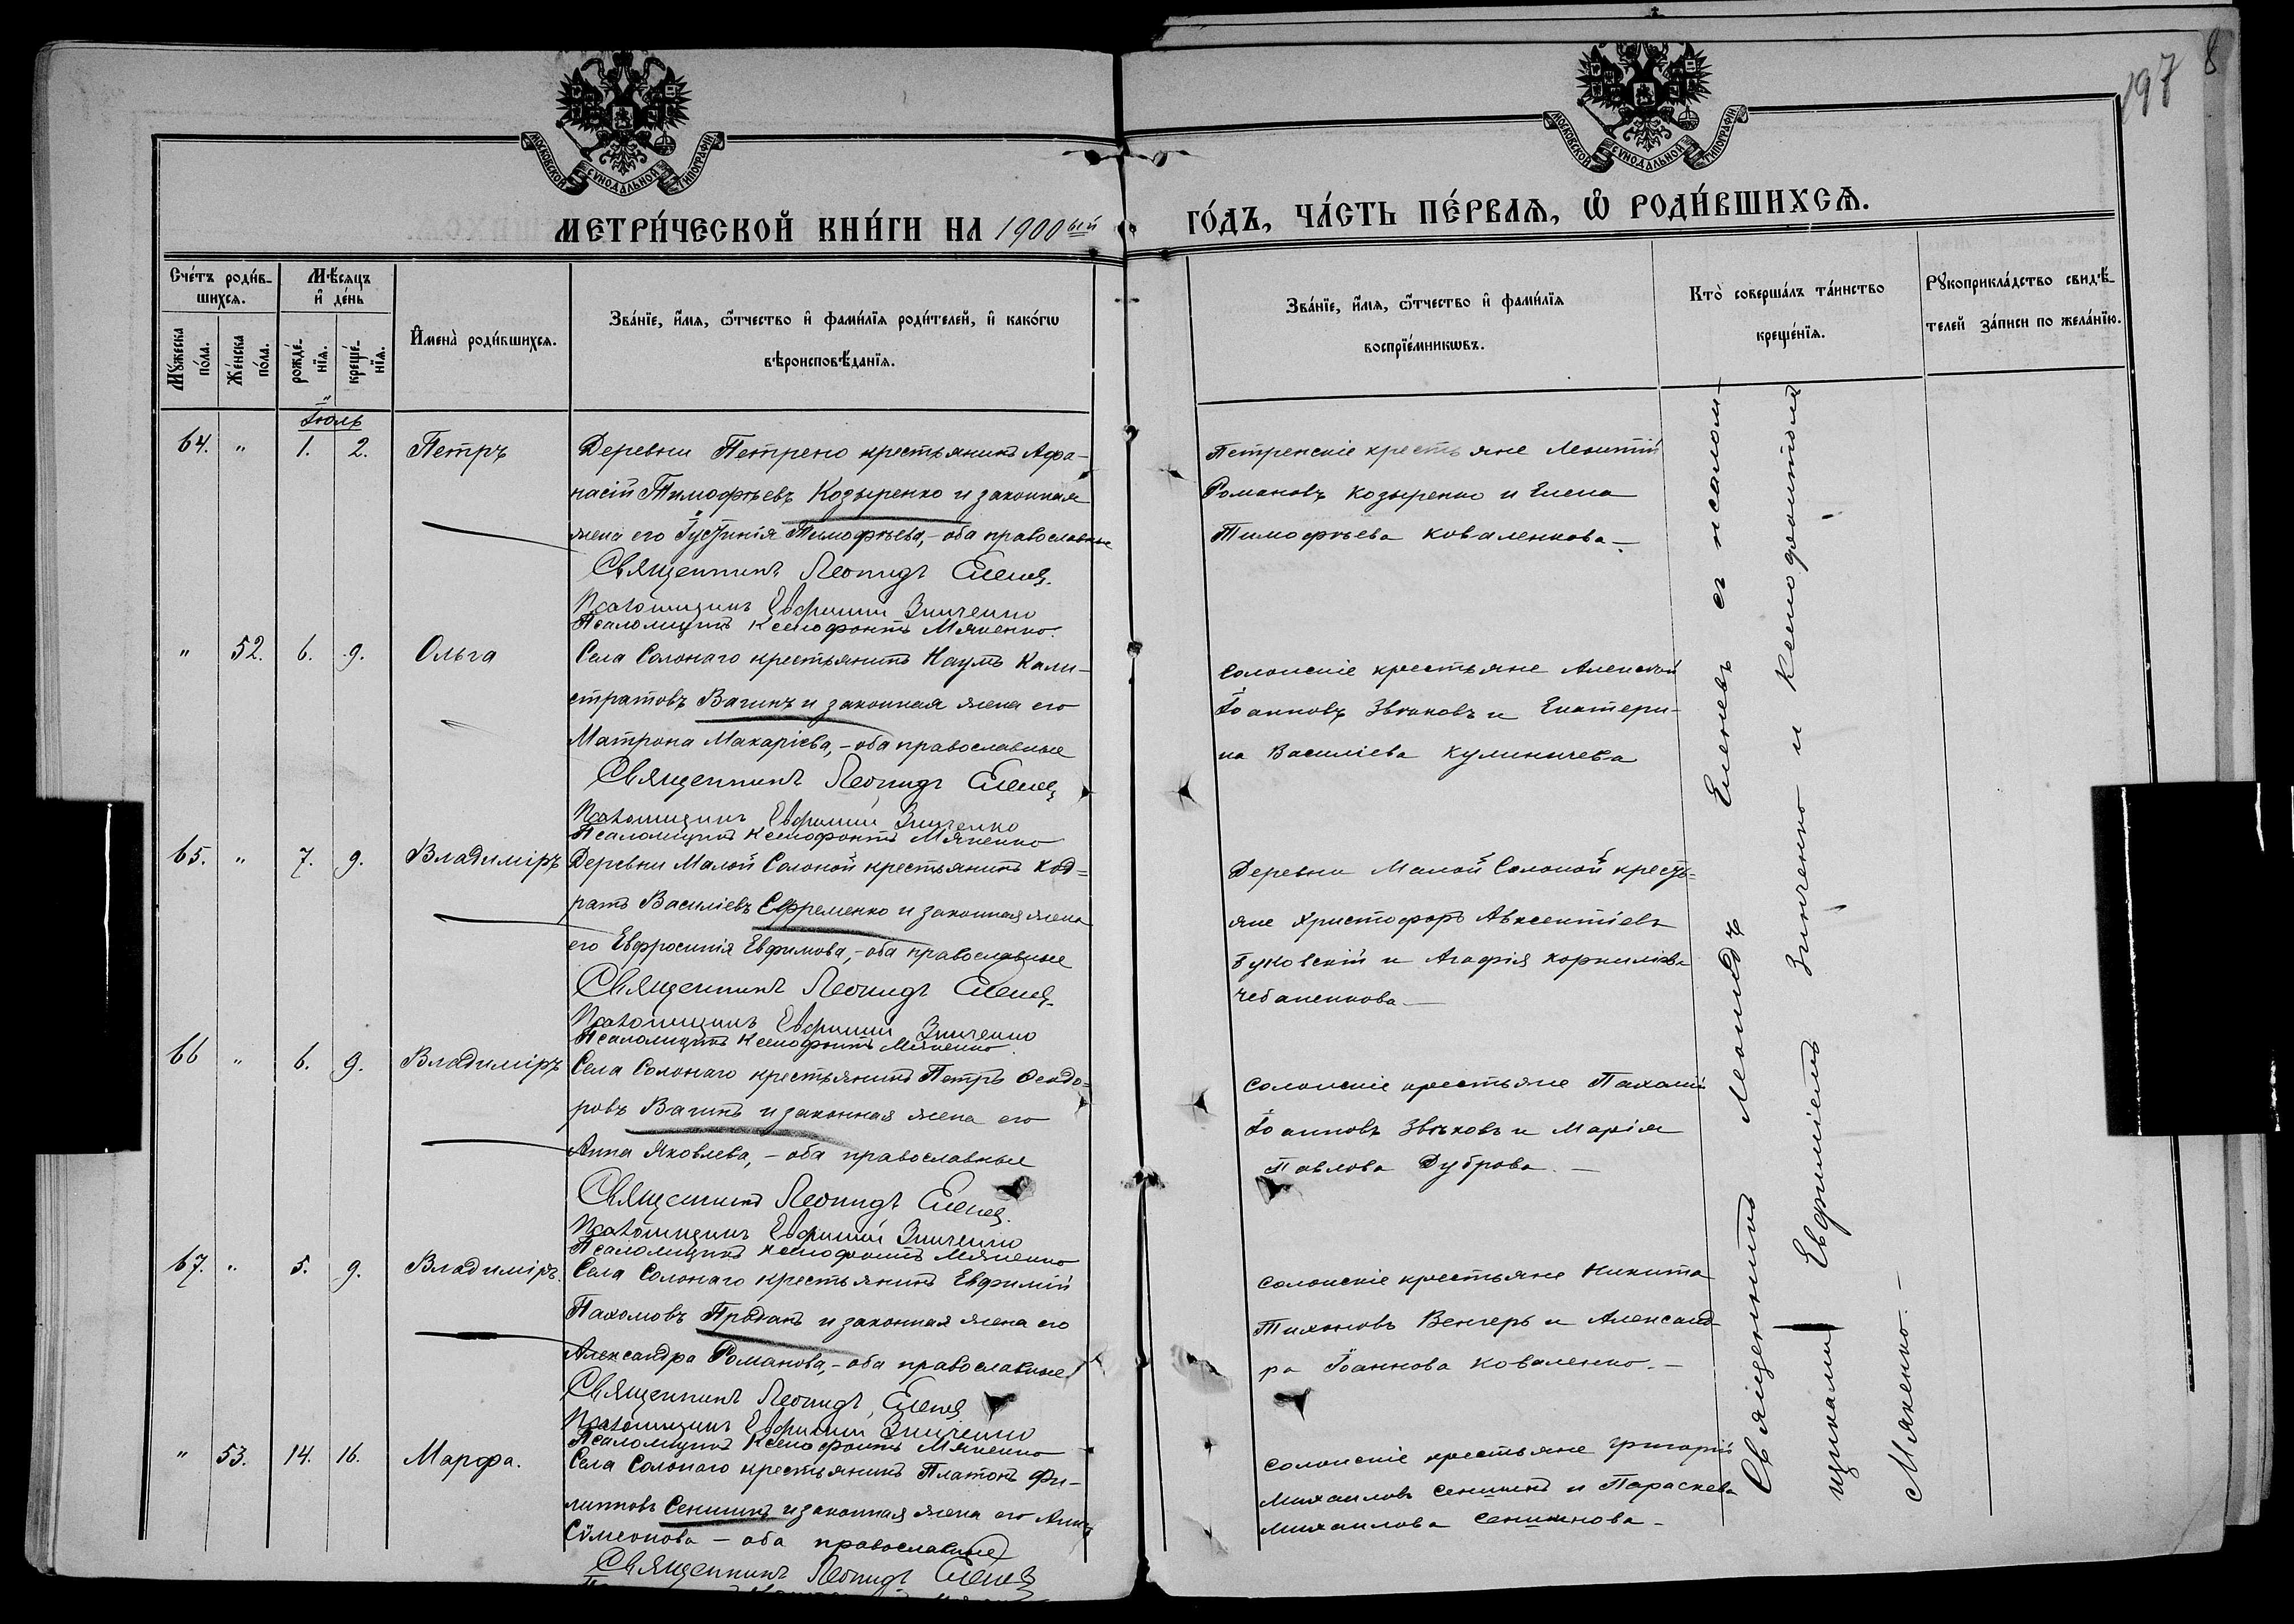 197
8
МОСКОВСКОЙ СѴНОДАЛЬНОЙ ТИПОГРАФІИ
МОСКОВСКОЙ СѴНОДАЛЬНОЙ ТИПОГРАФІИ
МЕТРИ́ЧЕСКОЙ КНИ́ГИ НА 1900ый
ГО́ДЪ, ЧА́СТЬ ПЕ́РВАЯ, Ѡ РОДИ́ВШИХСѦ.
Сче́тъ роди́в-
шихсѧ.
Мꙋ́жеска по́ла.
Же́нска по́ла.
Мѣ́сѧцъ
и҆ де́нь
рожде́-нїѧ.
креще́-нїѧ.
И҆мена̀ роди́вшихсѧ.
Зва́нїе, и҆́мѧ, ѻ҆́тчество и҆ фами́лїѧ роди́телей, и҆ како́гѡ
вѣроисповѣ́данїѧ.
Зва́нїе, и҆́мѧ, ѻ҆́тчество и҆ фами́лїѧ
воспрїе́мникѡвъ.
Кто̀ соверша́лъ та́инство
креще́нїѧ.
Рꙋкоприкла́дство свидѣ́-
телей за́писи по жела́нїю.
Іюль
64. " 1. 2. Петръ
Деревни Петрено крестьянинъ Афа-
насій Тимофѣевъ Козыренко и законная
жена его Іустинія Тимофѣева, - оба православные
Священникъ Леонидъ Еленевъ
Псаломщикъ Евфимій Зинченко
Псаломщикъ Ксенофонтъ Мякенко.
Петренскіе крестьяне Леонтій
Романовъ Козыренко и Елена
Тимофѣева Коваленкова. -
" 52. 6. 9. Ольга
Села Солонаго крестьянинъ Наумъ Кали-
стратовъ Вагинъ и законная жена его
Матрона Макаріева, - оба православные
Священникъ Леонидъ Еленевъ
Псаломщикъ Евфимій Зинченко
Псаломщикъ Ксенофонтъ Мякенко
Солонскіе крестьяне Алексѣй
Іоанновъ Звѣковъ и Екатери-
на Василіева Куминичева
65. " 7. 9. Владиміръ
Деревни Малой Солоной крестьянинъ Код=
ратъ Василіевъ Ефременко и законная жена
его Евфросинія Евфимова, - оба православные
Священникъ Леонидъ Еленевъ
Псаломщикъ Евфимій Зинченко
Псаломщикъ Ксенофонтъ Мякенко
Деревни Малой Солоной кресть=
яне Христофоръ Авксентіевъ
Буковскій и Агафія Корниліева
Чебаненкова. -
66 " 6. 9. Владиміръ
Села Солонаго крестьянинъ Петръ Ѳеодо-
ровъ Вагинъ и законная жена его
Анна Яковлева, - оба православные
Священникъ Леонидъ Еленевъ
Псаломщикъ Евфимій Зинченко
Псаломщикъ Ксенофонтъ Мякенко
Солонскіе крестьяне Пахомій
Іоанновъ Звѣковъ и Марія
Павлова Дуброва. -
67. " 5. 9. Владиміръ.
Села Солонаго крестьянинъ Евфимій
Пахомовъ Проданъ и законная жена его
Александра Романова, - оба православные
Священникъ Леонидъ Еленевъ
Псаломщикъ Евфимій Зинченко
Псаломщикъ Ксенофонтъ Мякенко
Солонскіе крестьяне Никита
Тихоновъ Венгеръ и Александ-
ра Іоаннова Коваленко. -
" 53. 14. 16. Марфа.
Села Солонаго крестьянинъ Платонъ Фи-
липповъ Сенишинъ и законная жена его Анна
Сѵмеонова - оба православные
Священникъ Леонидъ Еленевъ
Солонскіе крестьяне Григорій
Михаиловъ Сенишинъ и Параскева
Михаилова Сенишинова. -
Священникъ Леонидъ Еленевъ съ псалом-
щиками Евфиміемъ Зинченко и Ксенофонтомъ
Мякенко. -